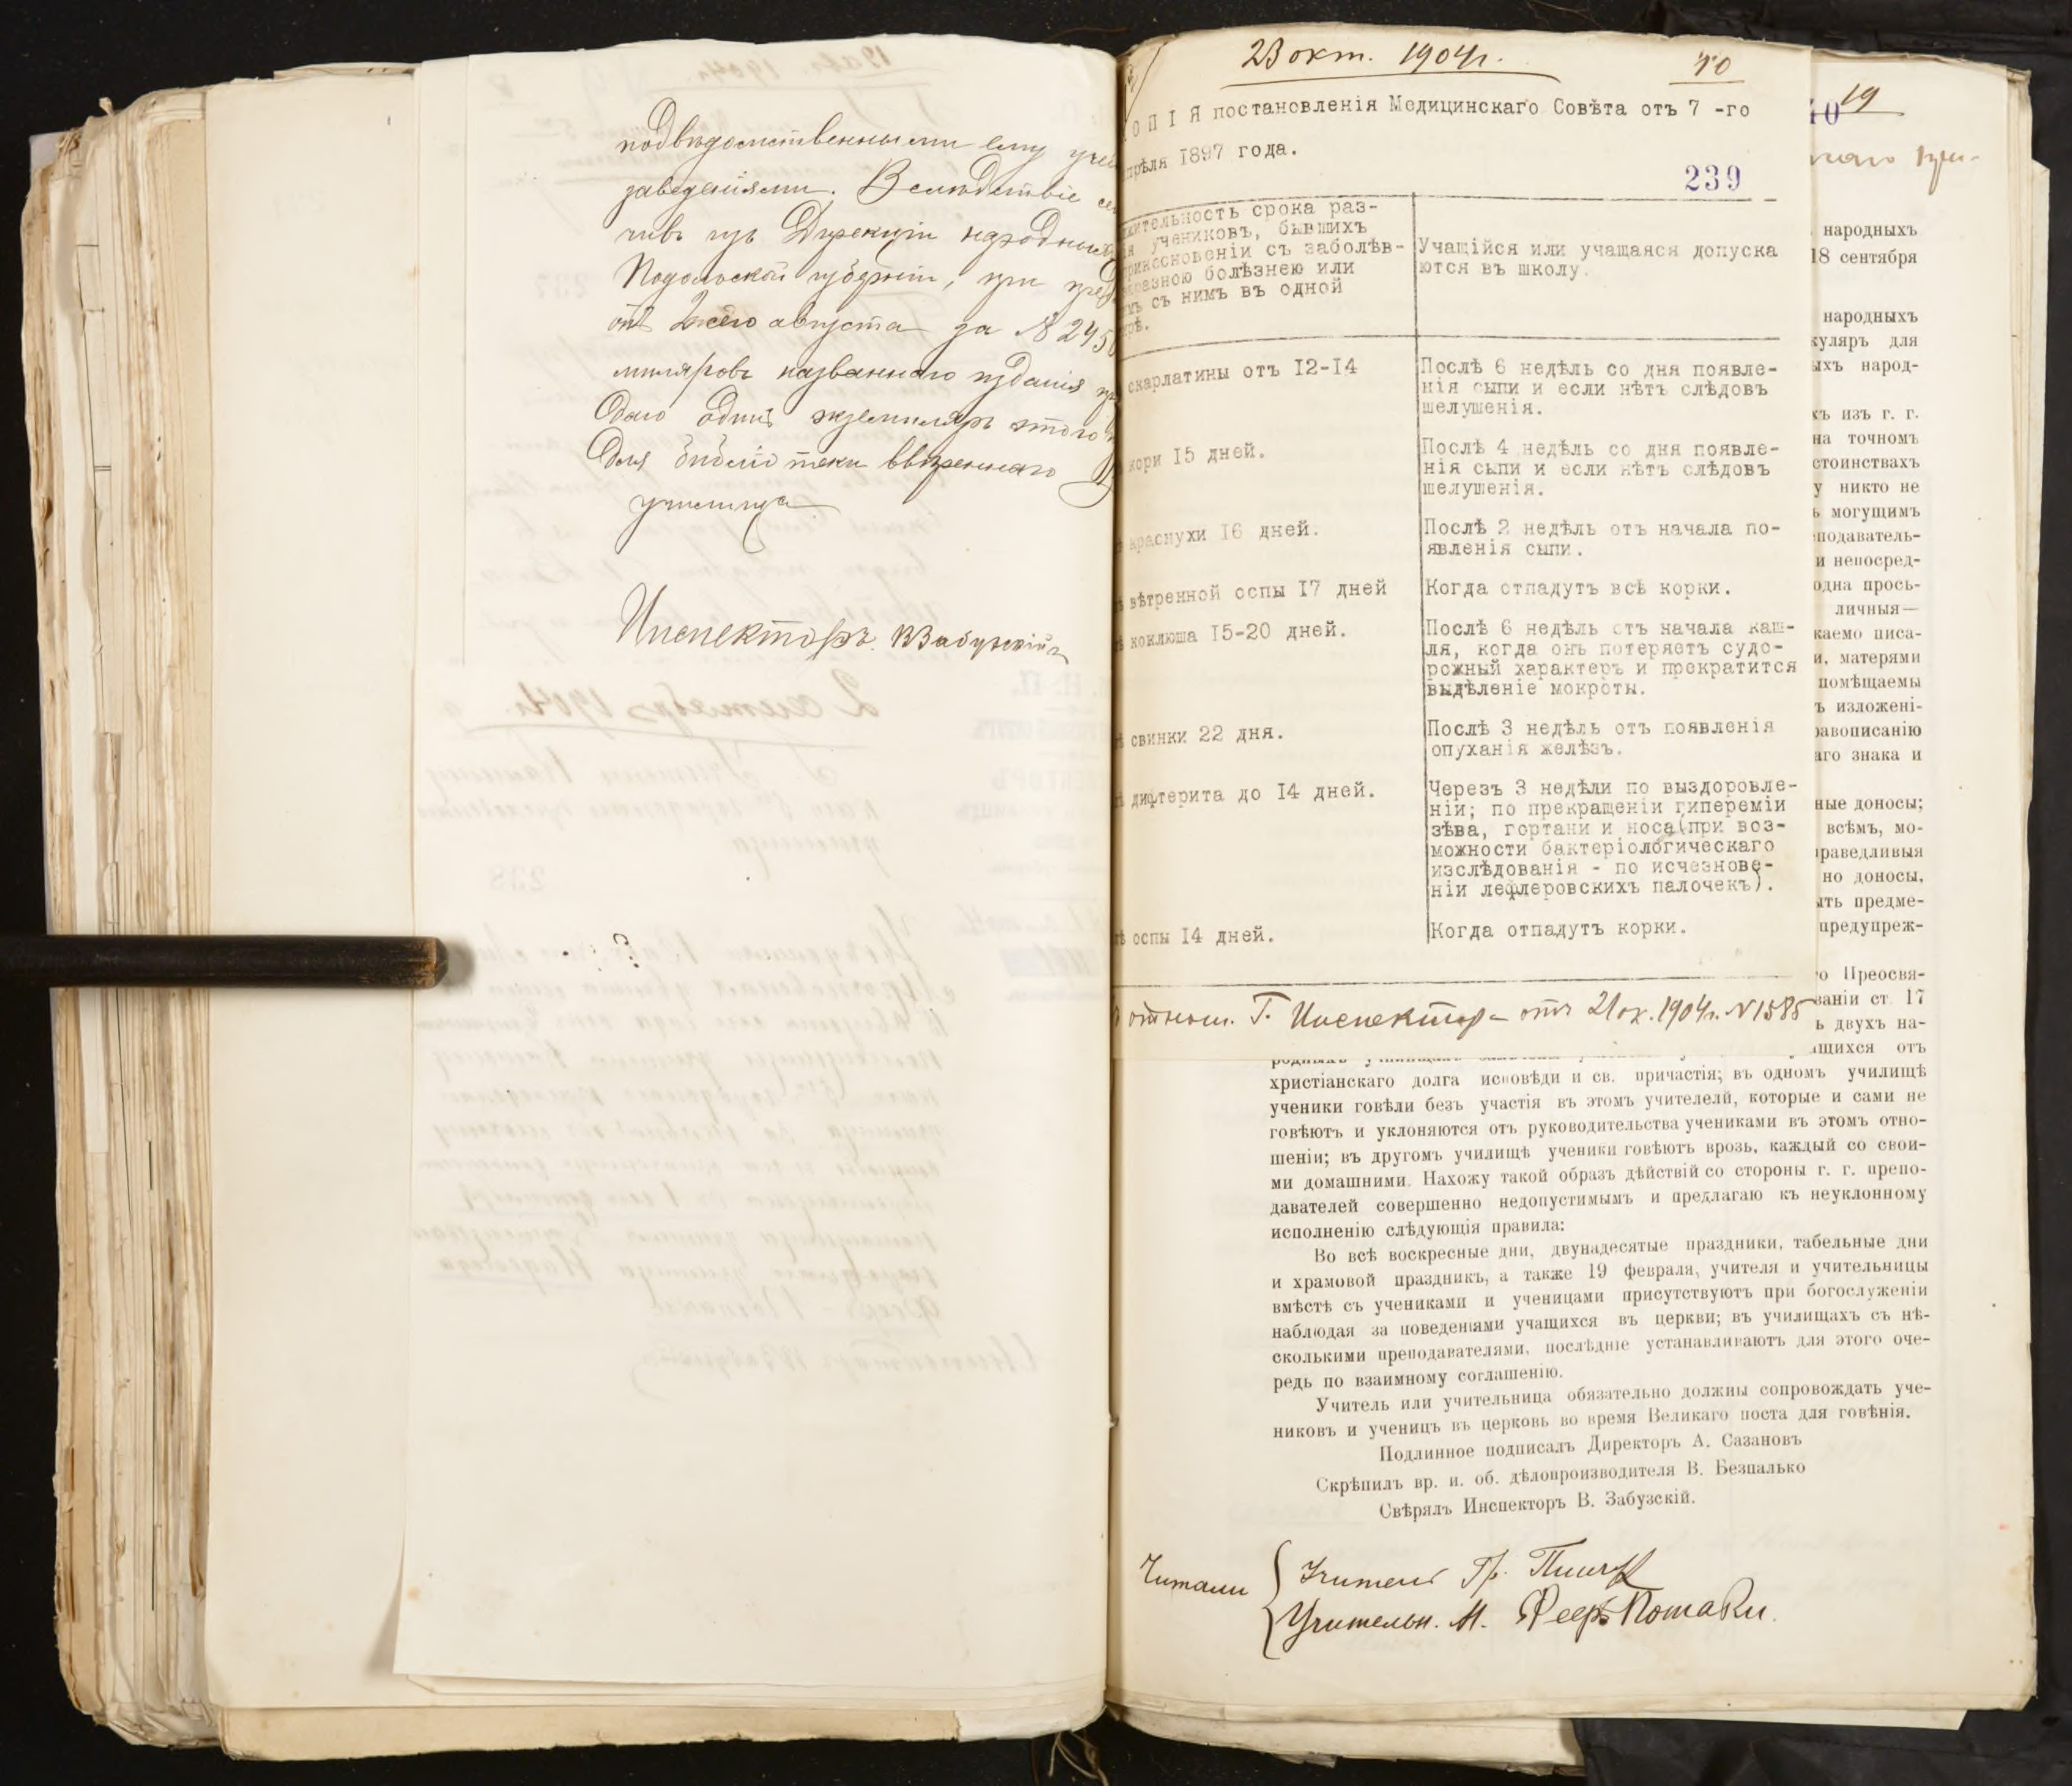 подведомственными ему
заведеніями. Вследствіе
чивъ изъ Дирекціи народныхъ
Подольской губерніи, при
отъ августа за № 245
миляровъ названнаго изданія
одинъ экземпляръ этого
для библіотеки ввѣреннаго
училища
Инспекторъ ВЗабузскій
23 окт. 1904г.
10
ОПІЯ постановленія Медицинскаго Совѣта отъ 7 -го
прѣля 1897 года.
239
жительность срока раз-
ія учениковъ, бывшихъ
рикосновеніи съ заболѣв-
разною болѣзнею или
мъ съ нимъ въ одной
рѣ.
Учащійся или учащаяся допуска
ются въ школу.
скарлатины отъ I2-I4
Послѣ 6 недѣль со дня появле-
нія сыпи и если нѣтъ слѣдовъ
шелушенія.
кори I5 дней.
Послѣ 4 недѣль со дня появле-
нія сыпи и если нѣтъ слѣдовъ
шелушенія.
краснухи I6 дней.
Послѣ 2 недѣль отъ начала по-
явленія сыпи.
вѣтренной оспы I7 дней
Когда отпадутъ всѣ корки.
коклюша I5-20 дней.
Послѣ 6 недѣль отъ начала каш-
ля, когда онъ потеряетъ судо-
рожный характеръ и прекратится
выдѣленіе мокроты.
свинки 22 дня.
Послѣ 3 недѣль отъ появленія
опуханія желѣзъ.
дифтерита до I4 дней.
Черезъ 3 недѣли по выздоровле-
ніи; по прекращеніи гипереміи
зѣва, гортани и носа(при воз-
можности бактеріологическаго
изслѣдованія - по исчезнове-
ніи лефлеровскихъ палочекъ).
оспы I4 дней.
Когда отпадутъ корки.
отнош. Г. Инспектора отъ 21 ок. 1904г. №1585
19
народныхъ
18 сентября
народныхъ
куляръ для
ыхъ народ-
хъ изъ г. г.
на точномъ
стоинствахъ
у никто не
ь могущимъ
подаватель-
и непосред-
одна прось-
личныя—
каемо писа-
и, матерями
помѣщаемы
ъ изложені-
равописанію
аго знака и
ные доносы;
всѣмъ, мо-
праведливыя
но доносы,
ыть предме-
предупреж-
о Преосвя-
ваніи ст. 17
ь двухъ на-
ащихся отъ
христіанскаго долга исповѣди и св. причастія; въ одномъ училищѣ
ученики говѣли безъ участія въ этомъ учителелй, которые и сами не
говѣютъ и уклоняются отъ руководительства учениками въ этомъ отно-
шеніи; въ другомъ училищѣ ученики говѣютъ врозь, каждый со свои-
ми домашними. Нахожу такой образъ дѣйствій со стороны г. г. препо-
давателей совершенно недопустимымъ и предлагаю къ неуклонному
исполненію слѣдующія правила:
Во всѣ воскресные дни, двунадесятые праздники, табельные дни
и храмовой праздникъ, а также 19 февраля, учителя и учительницы
вмѣстѣ съ учениками и ученицами присутствуютъ при богослуженіи
наблюдая за поведеніями учащихся въ церкви; въ училищахъ съ нѣ-
сколькими преподавателями, послѣдніе устанавливаютъ для этого оче-
редь по взаимному соглашенію.
Учитель или учительница обязательно должны сопровождать уче-
никовъ и ученицъ въ церковь во время Великаго поста для говѣнія.
Подлинное подписалъ Директоръ А. Сазановъ
Скрѣпилъ вр. и. об. дѣлопроизводителя В. Безпалько
Свѣрялъ Инспекторъ В. Забузскій.
Читали
Учитель Гр.
Учительн. М.